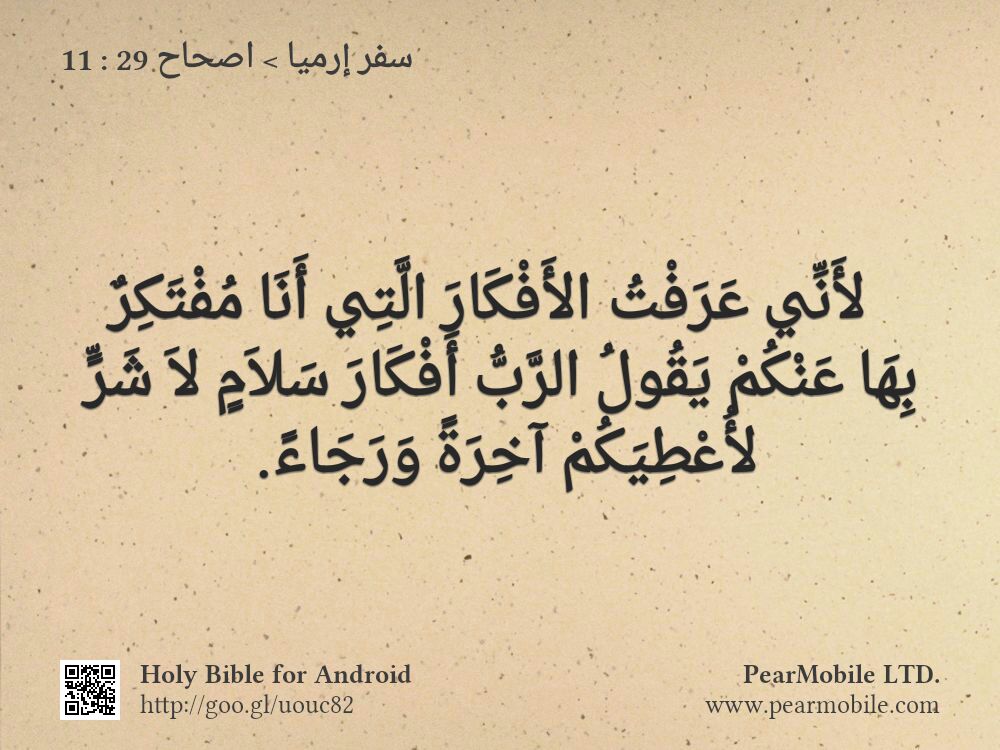 سفر إرميا > اصحاح 29 : 11
لأَنِّي عَرَفْتُ الأَفْكَارَ الَّتِي أَنَا مُفْتَكِرٌ
بِهَا عَنْكُمْ يَقُولُ الرَّبُّ أَفْكَارَ سَلاَمٍ لاَ شَرٍّ
لأُعْطِيَكُمْ آخِرَةً وَرَجَاءً.
Holy Bible for Android
http://goo.gl/uouc82
PearMobile LTD.
www.pearmobile.com